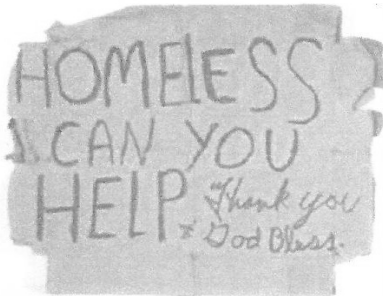 HOMELESS
CAN YOU
HELP. Thank you
& God Bless.